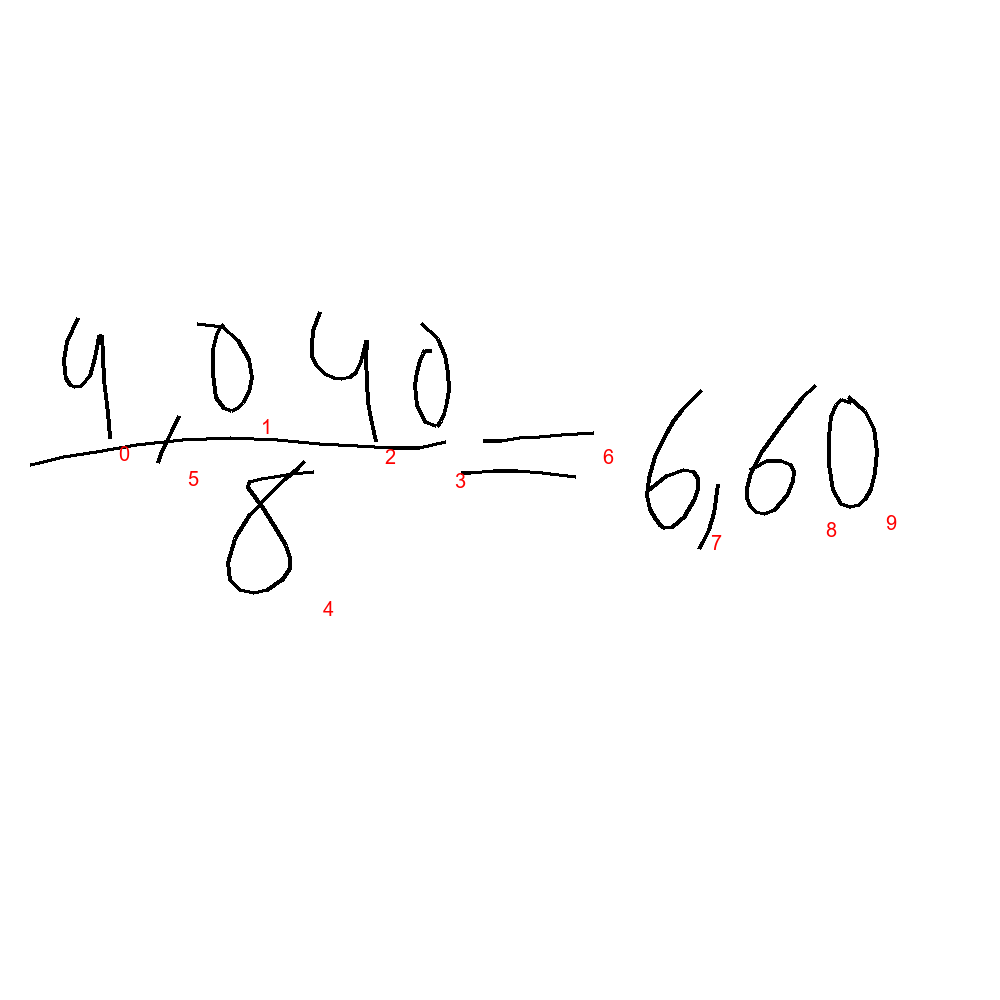 4,040
8
= 6,60
0
1
2
3
4
5
6
7
8
9